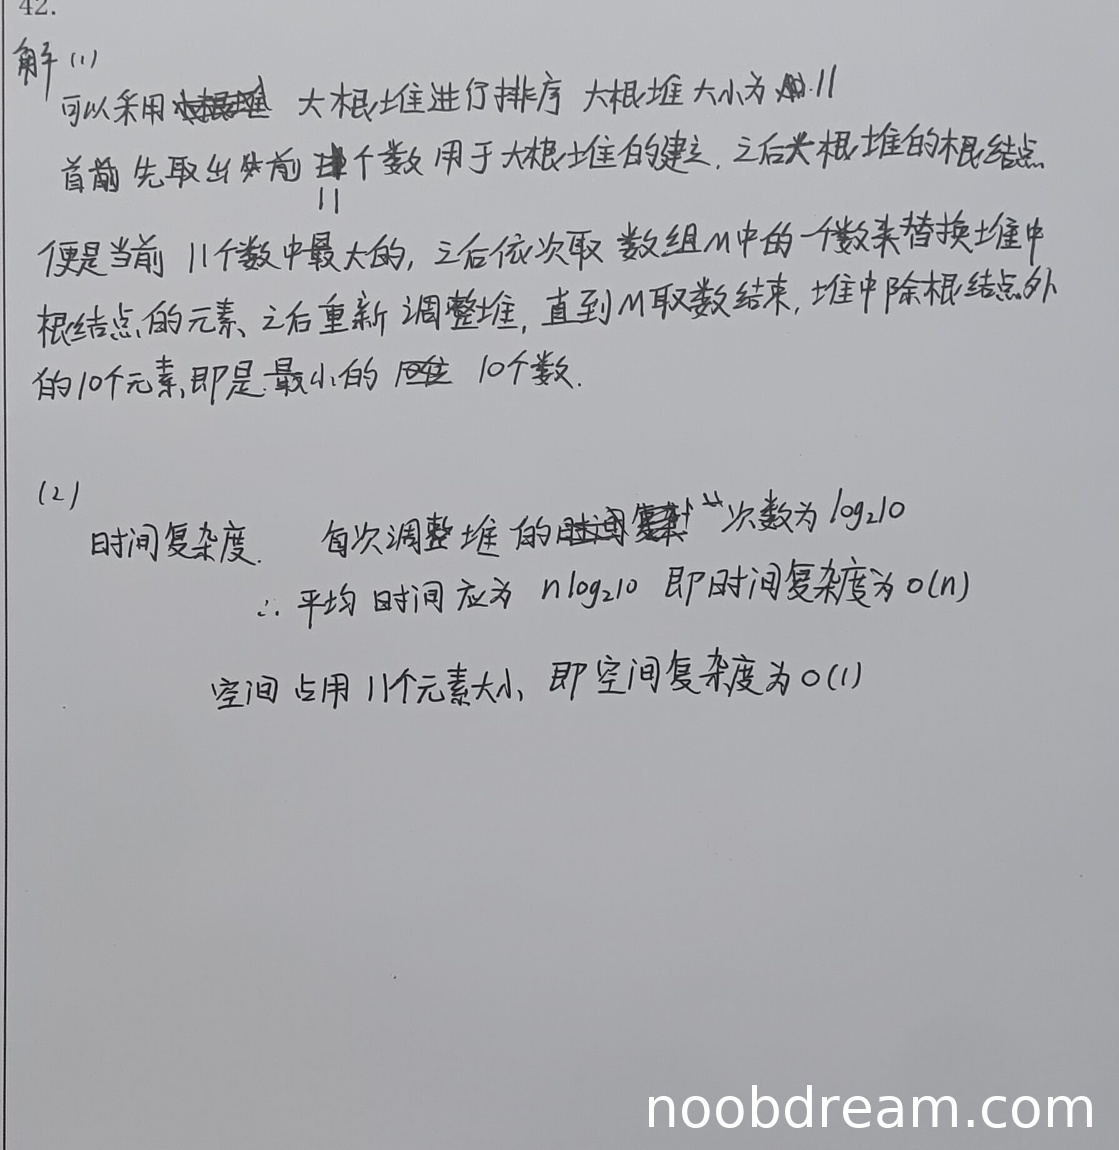 42.
解(1)
可以采用 大根堆进行排序 大根堆大小为 11
首前 先取出 前 11 个数 用于大根堆的建立, 之后大根堆的根结点
便是当前 11个数中最大的, 之后依次取 数组M中的一个数来替换堆中
根结点的元素, 之后重新 调整堆, 直到M取数结束, 堆中除根结点外
的10个元素, 即是最小的 10个数.
(2)
时间复杂度. 每次调整堆的 次数为 log₂10
∴ 平均时间应为 nlog₂10 即时间复杂度为 O(n)
空间占用 11个元素大小, 即空间复杂度为 O(1)
noobdream.com